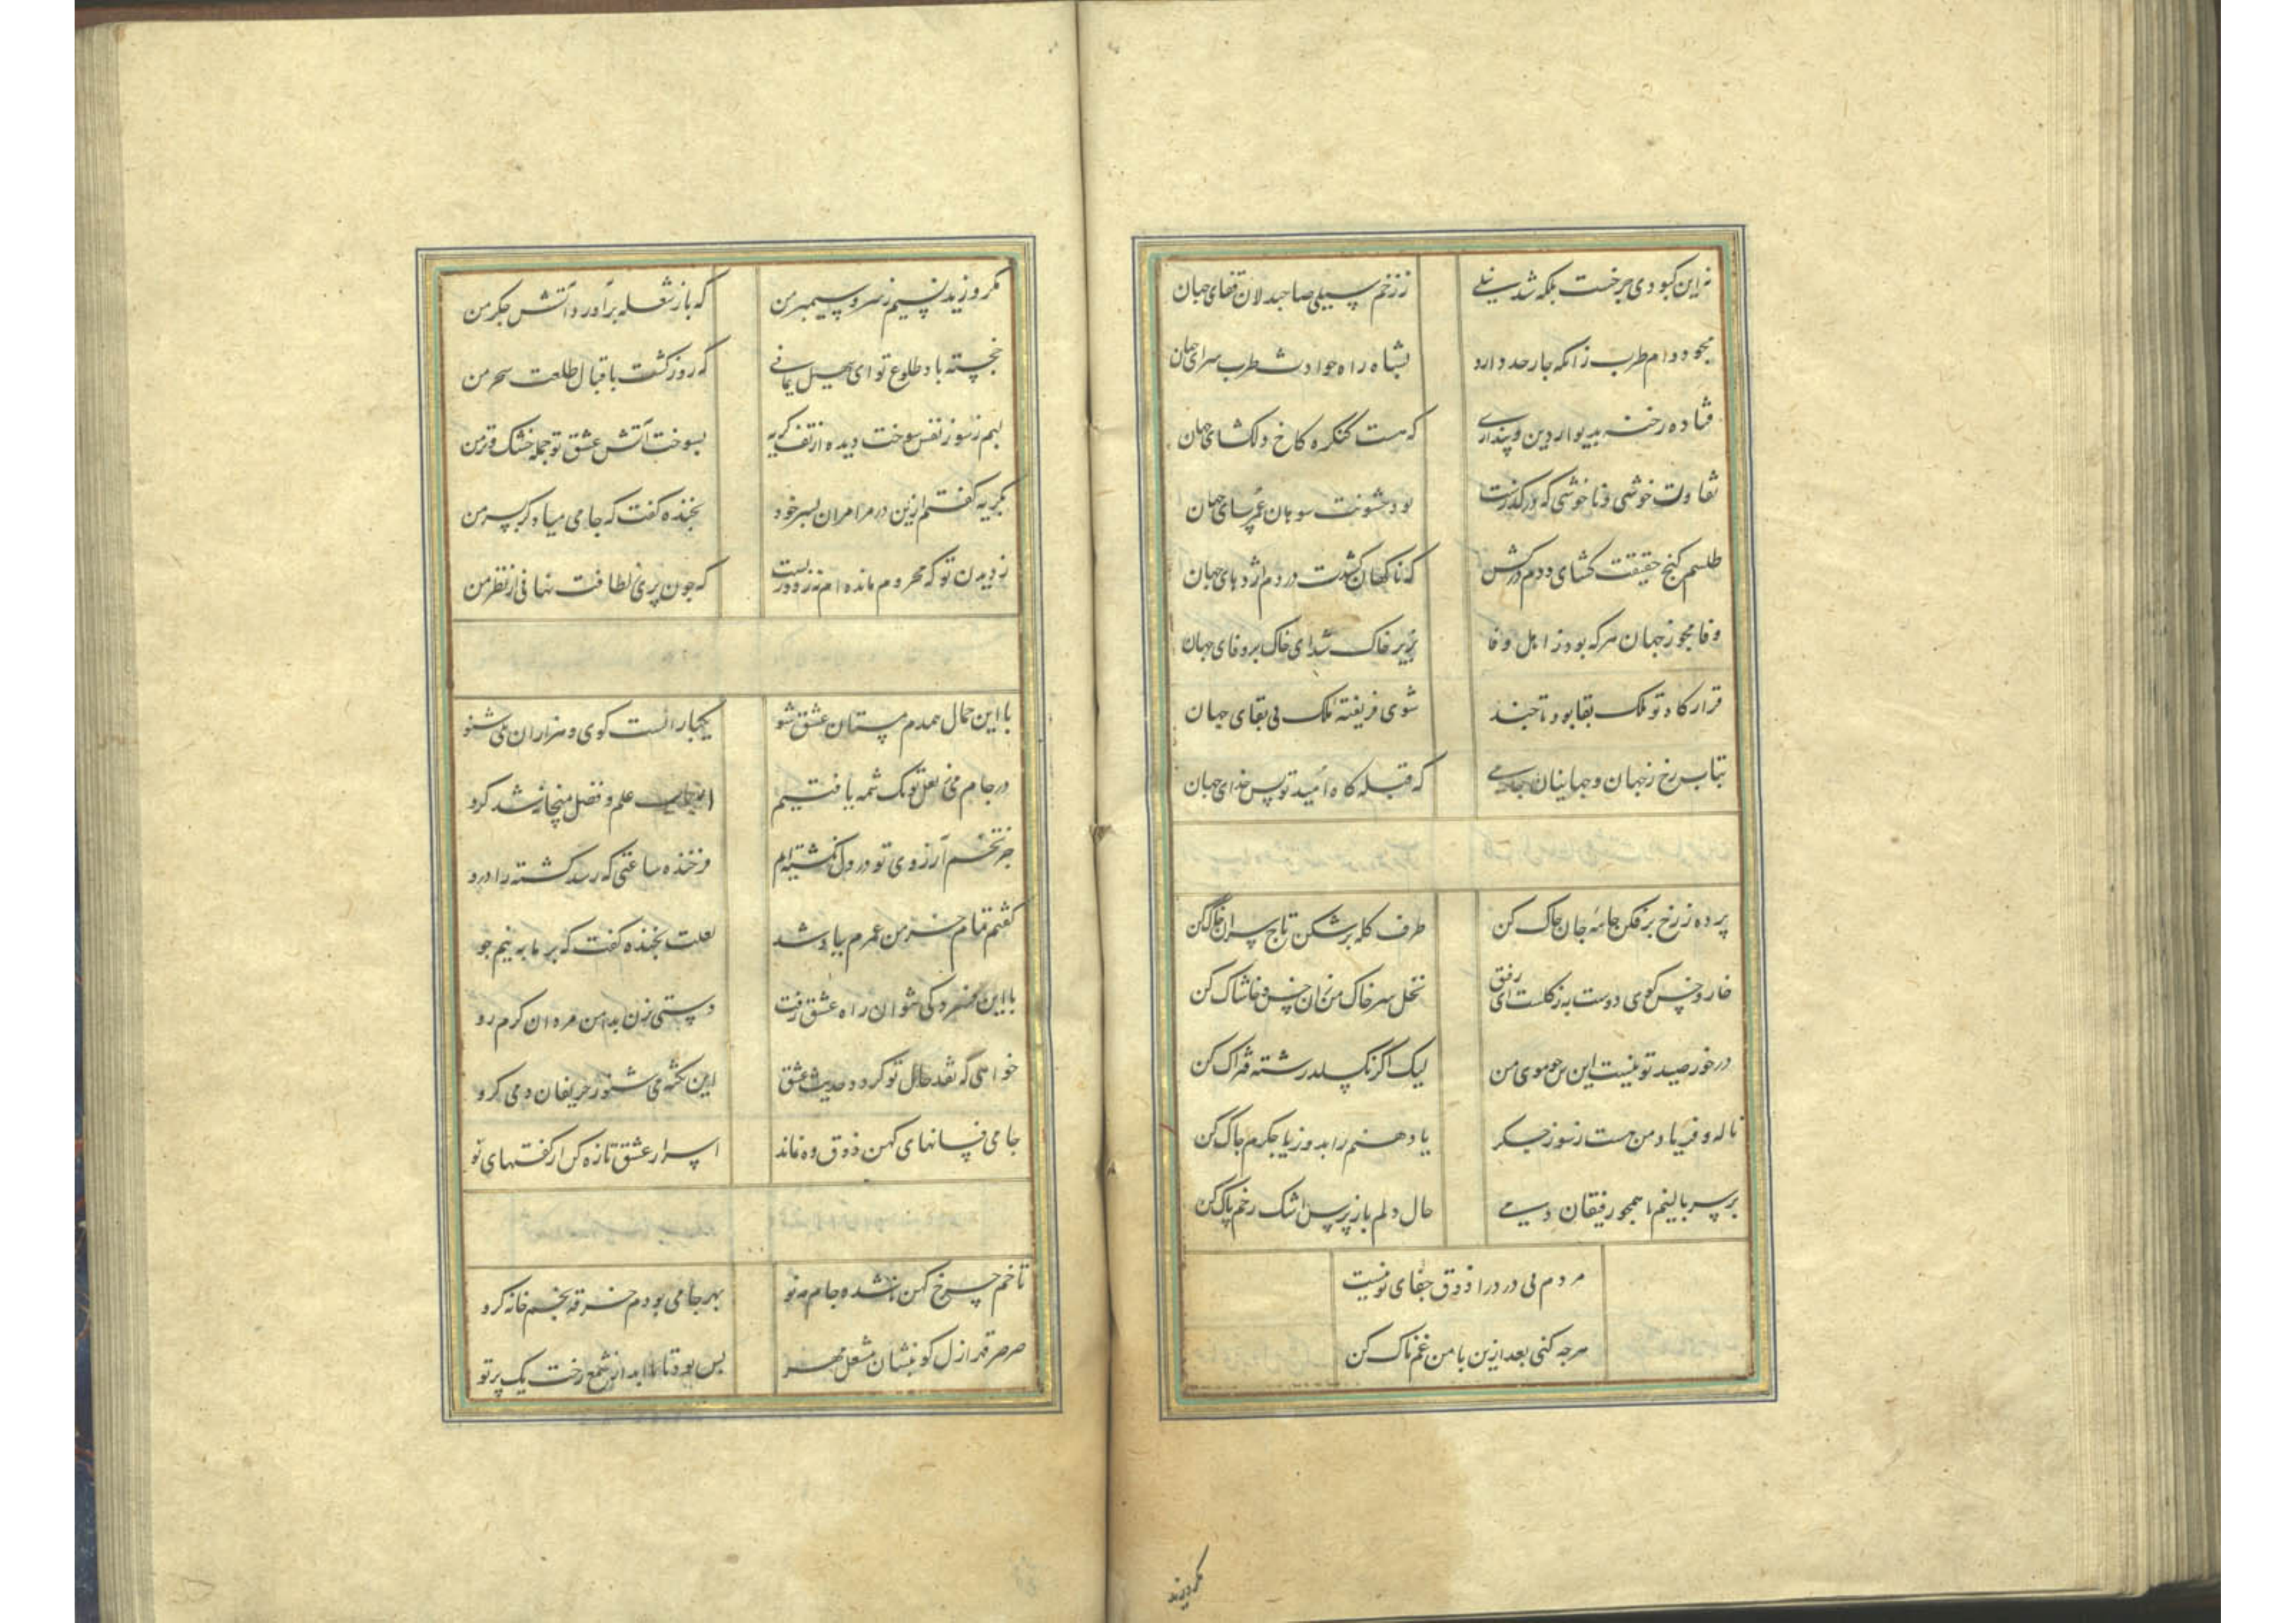 نه این کبودی چرخست بلکه شد نیلی ز زخم سیلی صاحبدلان قفای جهان
مجو دوام طرب زانکه چار حد دارد بشاه راه حوادث طرب سرای جهان
فتاده رخنه بدیوار دین و پنداری که هست کنگره کاخ دلکشای جهان
تفاوت خوشی و ناخوشی که در گذرست بود خشونت سوهان عمرسای جهان
طلسم کنج حقیقت کشای ودم درکش که ناکهان کشدت در دم اژدهای جهان
وفا مجو ز جهان هر که بود ز اهل وفا بزیر خاک شد ای خاک بر وفای جهان
قرارکاه تو ملک بقا بود تا چند شوی فریفته ملک بی بقای جهان
بتاب رخ ز جهان و جهانیان جامی که قبله کاه امید تو بس خدای جهان
پرده ز رخ برفکن جامه جان چاک کن طرف کله برشکن تاج سران خاک کن
خار و خس کوی دوست به ز کلست ای رفیق نخل سر خاک من زان خس و خاشاک کن
در خور صید تو نیست این من چو موی من لیک اگر بکسلد رشته فتراک کن
ناله و فریاد من هست ز سوز جکر یا دهنم را بدوز یا جکرم چاک کن
بر سر بالینم آ همچو رفیقان دمی حال دلم باز پرس اشک رخم پاک کن
مردم بی درد را ذوق جفای تو نیست
هرچه کنی بعد ازین با من غمناک کن
مکر وزید
مکر وزید نسیم ز سرو سیمبر من که باز شعله برآورد آتش جکر من
خجسته باد طلوع تو ای سهیل یمانی که روز کشت باقبال طلعت سحر من
لبم ز سوز نفس سوخت دیده از تف کریه بسوخت آتش عشق تو جمله خشک و تر من
بکریه کفتم ازین در مرا مران بسر خود بخنده کفت که جامی میا دکر بسر من
ز دیدن تو که محروم مانده ام نه ز دوریست که چون پری ز لطافت نهانی از نظر من
با این جمال همدم مستان عشق شو یکبار انت کوی و هزاران بلی شنو
در جام می ز لعل تو یک شمه یافتیم اسباب علم و فضل بمیخانه شد کرو
جز تخم آرزوی تو در دل نکشته ایم فرخنده ساعتی که رسد کشته را درو
کفتم تمام خرمن عمرم بباد شد لعلت بخنده کفت که بر ما به نیم جو
با این خرد کی توان راه عشق رفت دستی بزن بدامن مردان کرم رو
خواهی که نقد حال تو کردد حدیث عشق این نکته می شنو ز حریفان و می کرو
جامی فسانهای کهن ذوق ده نماند اسرار عشق تازه کن از کفتهای نو
تا خم چرخ کهن ناشده جام مه نو بهر جامی بودم خرقه بخمخانه کرو
صرصر قهر ازل کو بنشان مشعل مهر بس بود تا بابد از شمع رخت یک پرتو